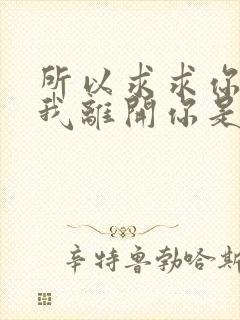 所以求求你
我離開你是
辛特魯勃哈斯